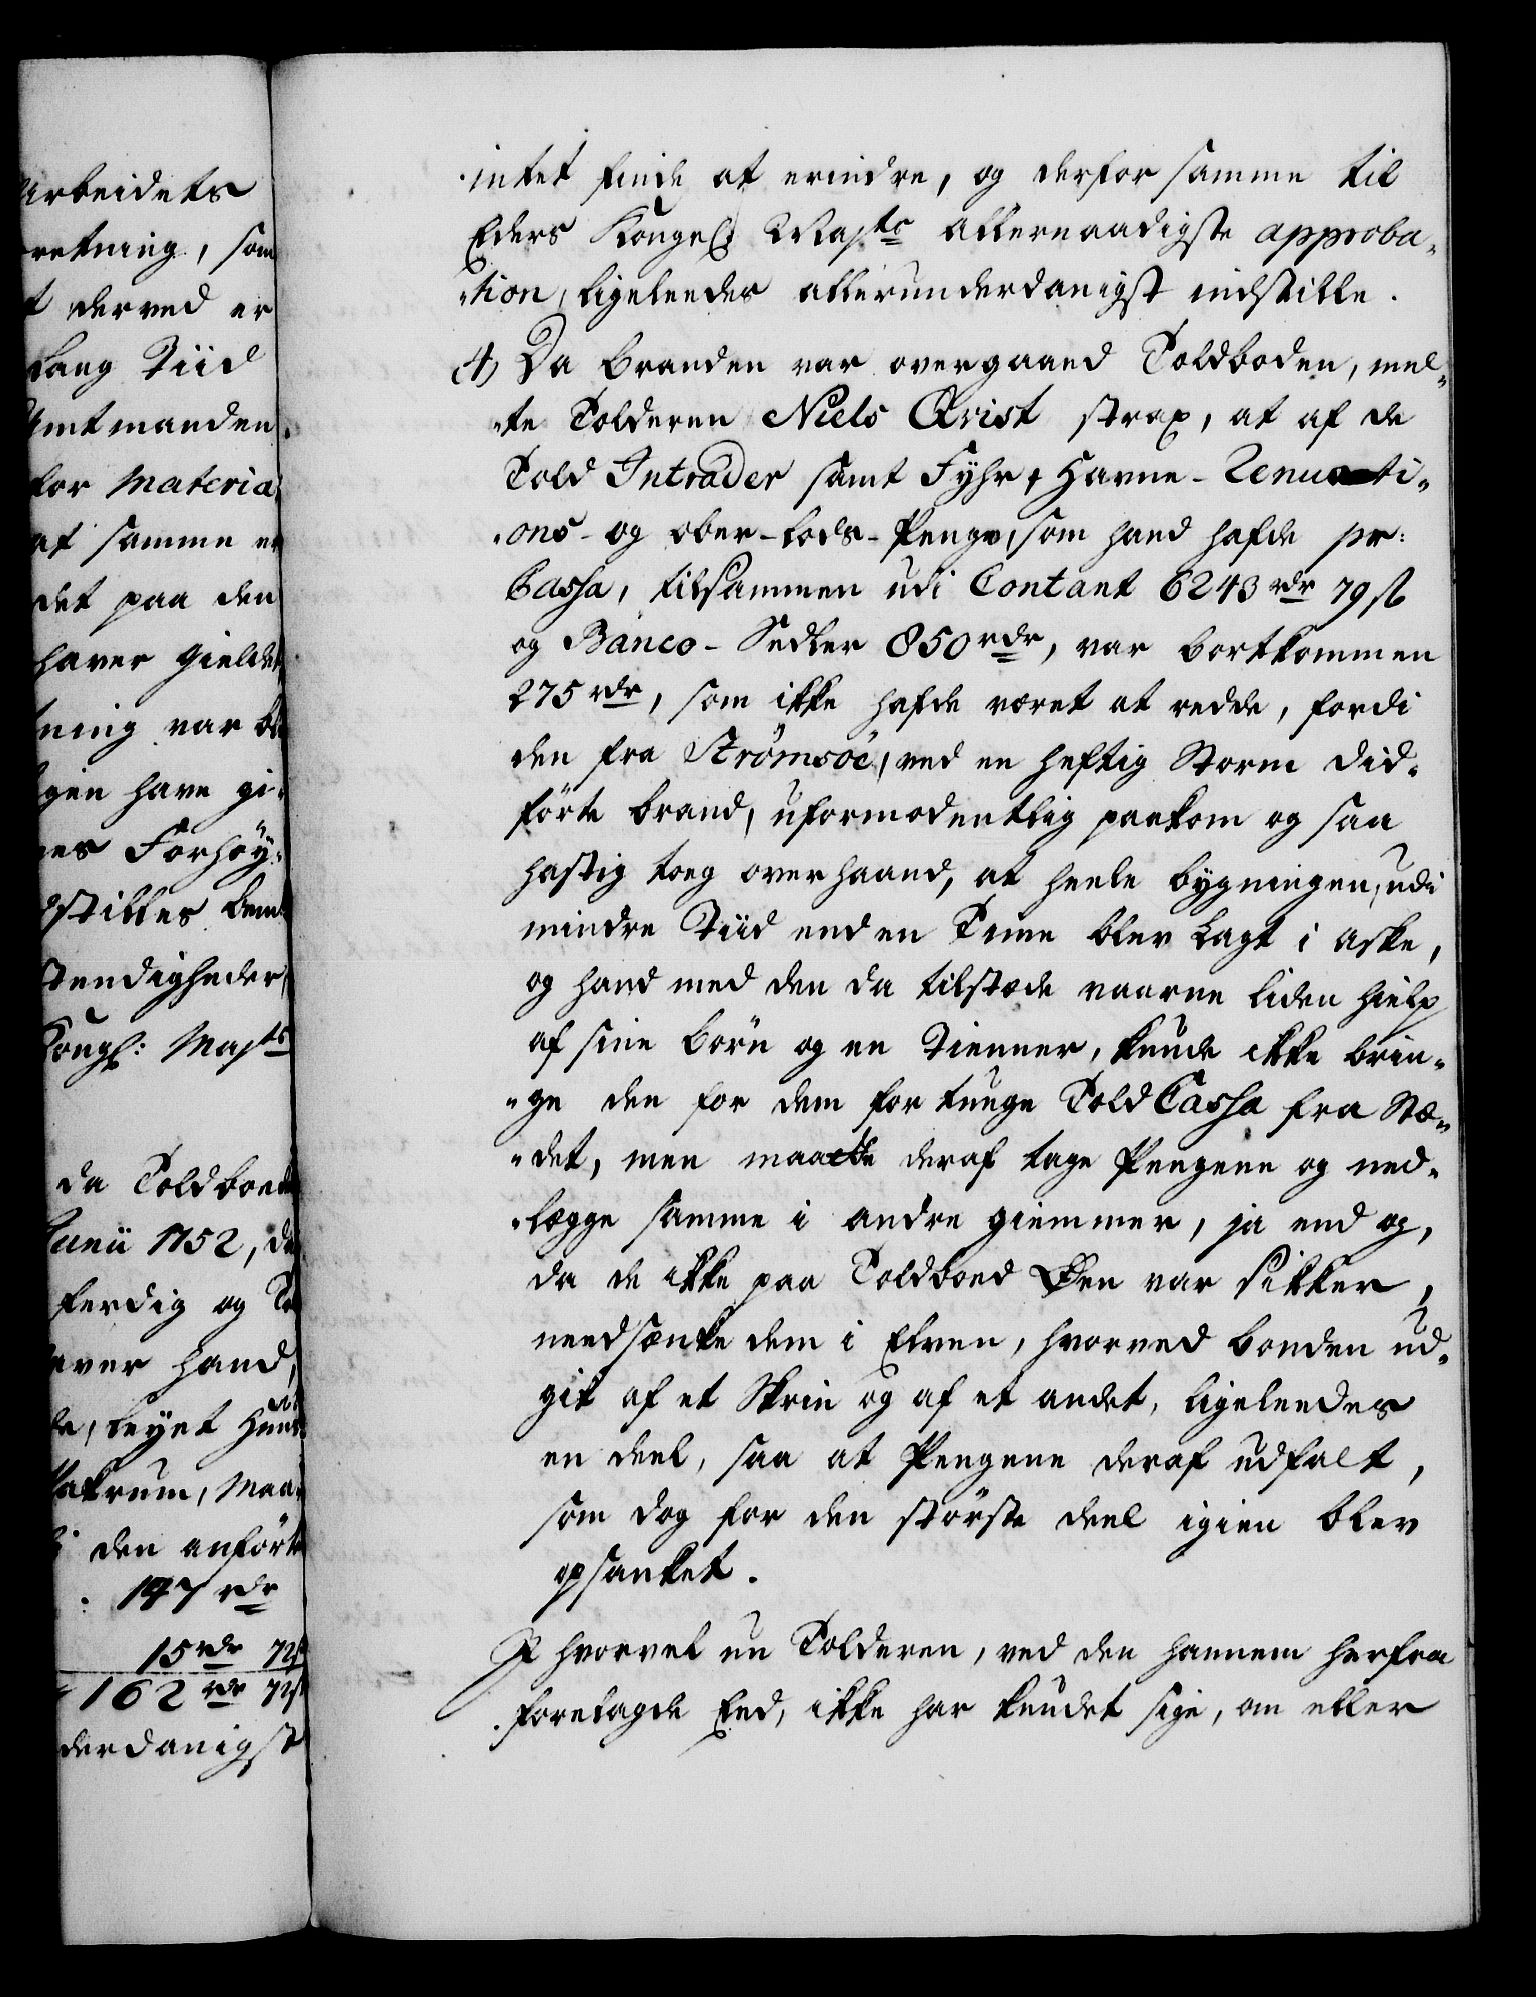 Arbeidets
retning, som
t derved er
Lang Tiid
Amtmanden
for Materia
af samme er
det paa den
haver gieldet
ning var bl
gen have gi
nes Forhöy-
stilles
stendigheder
Kongl: Majts
da Toldboed
Junii 1752, de
ferdig og To
aver hand,
leyet
Pakrum, Maa
den anförte
147 rdr
15 rdr 72 s
162 rdr 72 s
derdanigst
intet finde at erindre, og derfor samme til
Eders Kongel: Majts allernaadigste approba-
tion, ligeleedes allerunderdanigst indstille.
4) Da branden var overgaaed Toldboden, mel-
te Tolderen Niels Qvist strax, at af de
Told Intrader samt Fyhr, Havne-
ons- og ober-Lods-Penge, som hand hafde pr:
Cassa, tilsammen udi Contant 6243 rdr 79 s
og Banco-Sedler 850 rdr, var bortkommen
275 rdr, som ikke hafde været at redde, fordi
den fra Strømsöe, ved en heftig Storm did-
förte brand, uformodentlig paakom og saa
hastig tog overhaand, at heele bygningen, udi
mindre Tiid end en Time blev Lagt i aske,
og hand med den da tilstæde vaarne liden hielp
af sine börn og en Tienner, kunde ikke brin-
ge den for dem for tunge Told Cassa fra Stæ-
det, men maatte deraf tage Pengene og ned-
lægge samme i andre giemmer, ja end og,
da de ikke paa Toldboed Öen var sikker,
needsænke dem i Elven, hvorved bonden ud-
gik af et Skrin og af et andet, ligeleedes
en deel, saa at Pengene deraf udfalt,
som dog for den störste deel igien blev
opsanket.
Ihvorvel nu Tolderen, ved den hannem herfra
forelagde Eed, ikke har kundet sige, om eller